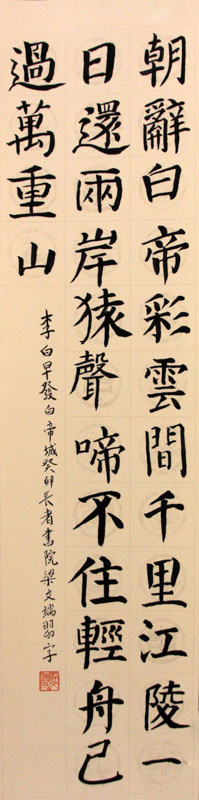 朝辭白帝彩雲間千里江陵一
日還兩岸猿聲啼不住輕舟已
過萬重山
李白早發白帝城癸卯長者書院梁文端習字